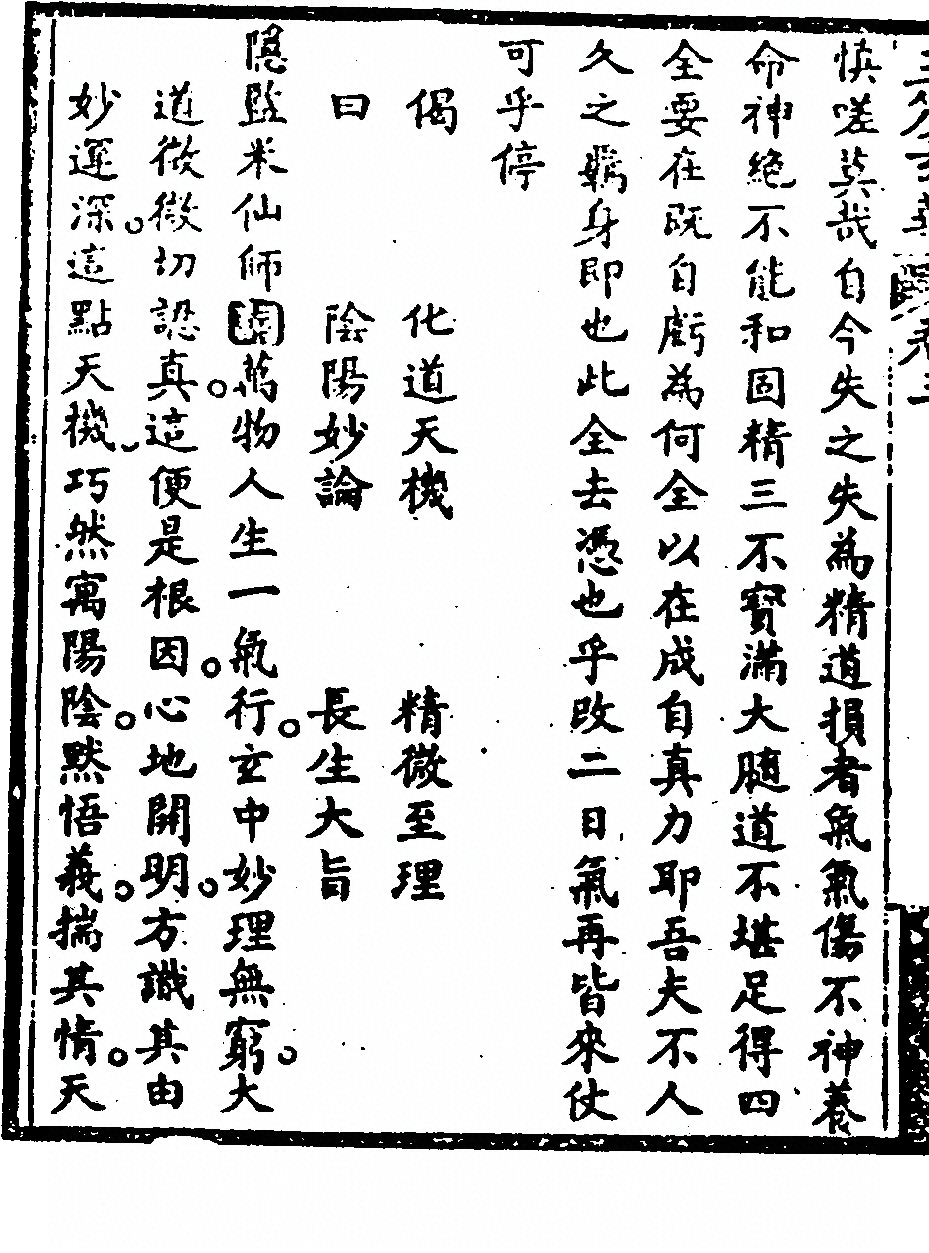 慎嗟莫哉自今失之失為精道損者氣氣傷不神養
命神絕不能和固精三不寶滿大隨道不堪足得四
全要在既自虧為何全以在成自真力耶吾夫不人
久之嬌身即也此全去憑也乎改二日氣再皆來仗
可乎停
偈 化道天機 精微至理
曰 陰陽妙論 長生大旨
隱監米仙師 萬物人生一氣行。玄中妙理無窮。大
道微微切認真。這便是根因。心地開明。方識其由
妙運深。這點天機、巧然寓陽陰。默悟義。揣其情。天